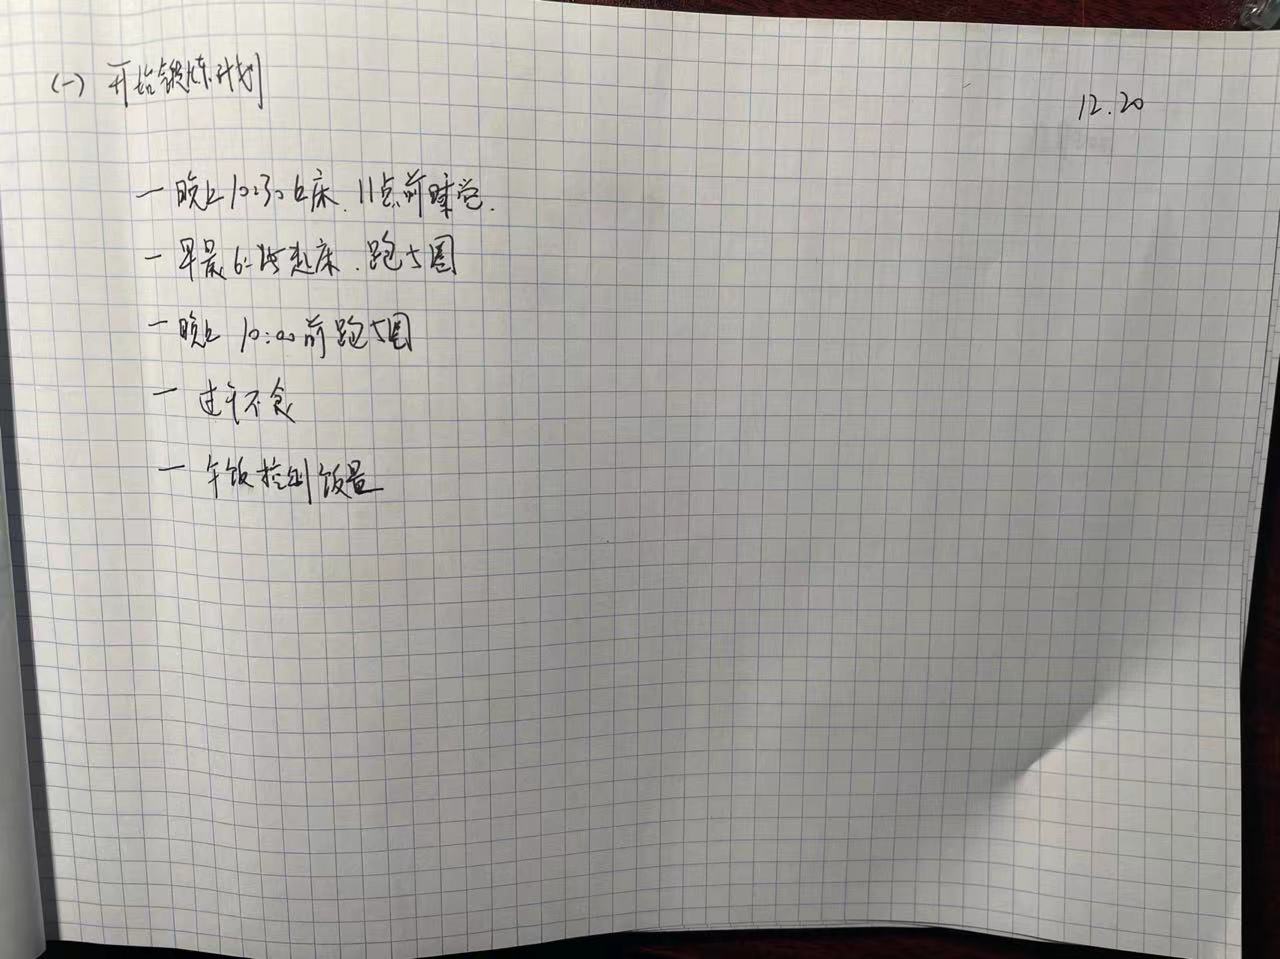 (一) 开始锻炼计划
12.20
一 晚上10:30上床.11点前睡觉.
一 早晨6:45起床.跑5圈
一 晚上 10:00前跑5圈
一 过午不食
一 午饭控制饭量